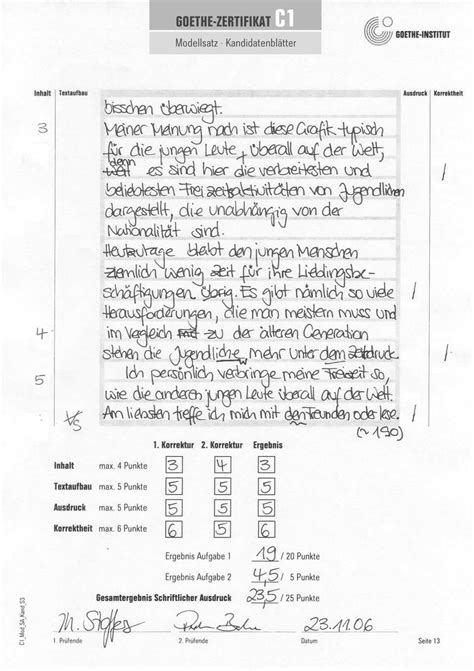 GOETHE-ZERTIFIKAT C1
Modellsatz · Kandidatenblätter
GOETHE-INSTITUT
Inhalt Textaufbau Ausdruck Korrektheit
bisschen überwiegt.
3 Meiner Meinung nach ist diese Grafik typisch
für die jungen Leute überall auf der Welt,
denn
weil es sind hier die verbreitesten und
beliebtesten Freizeitaktivitäten von Jugendlichen
dargestellt, die unabhängig von der
Nationalität sind.
Heutzutage bleibt den jungen Menschen
ziemlich wenig Zeit für ihre Lieblingsbe-
schäftigungen übrig. Es gibt nämlich so viele
Herausforderungen, die man meistern muss und
4 im Vergleich zu der älteren Generation
stehen die Jugendliche mehr unter dem Zeitdruck.
5 Ich persönlich verbringe meine Freizeit so,
wie die anderen jungen Leute überall auf der Welt.
Am liebsten treffe ich mich mit den Freunden oder lese.
(~190)
1. Korrektur 2. Korrektur Ergebnis
Inhalt max. 4 Punkte 3 4 3
Textaufbau max. 5 Punkte 5 5 5
Ausdruck max. 5 Punkte 5 5 5
Korrektheit max. 6 Punkte 6 5 6
Ergebnis Aufgabe 1 19 / 20 Punkte
Ergebnis Aufgabe 2 4,5 / 5 Punkte
Gesamtergebnis Schriftlicher Ausdruck 23,5 / 25 Punkte
23.11.06
1. Prüfende 2. Prüfende Datum Seite 13
C1_Mod_SA_Kand_S3